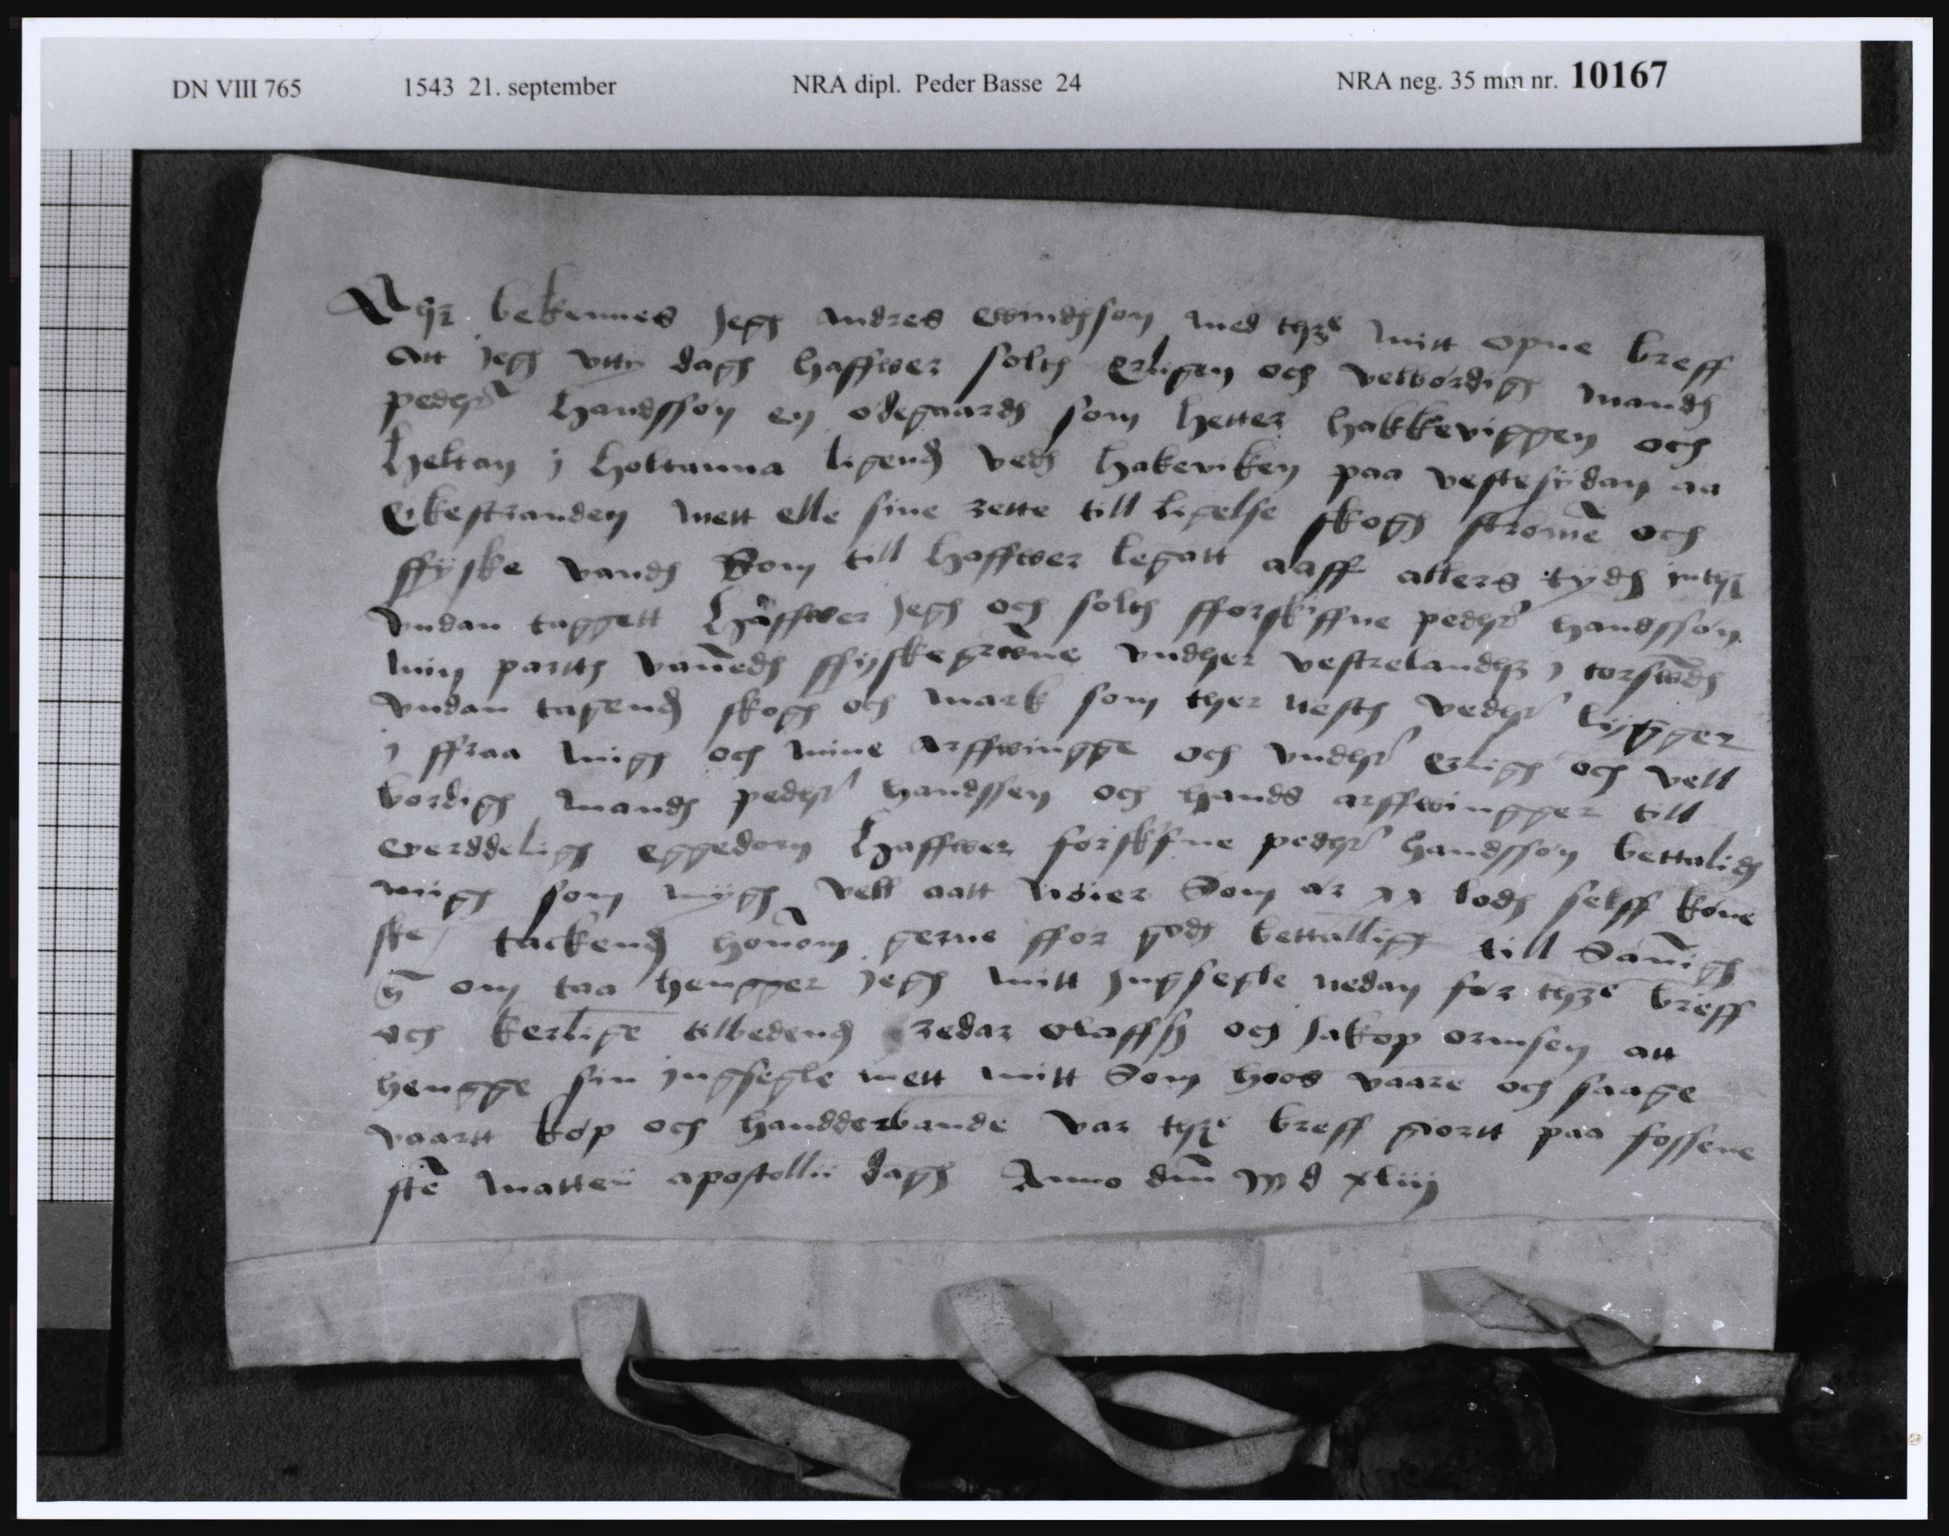 DN VIII 765 1543 21. september NRA dipl. Peder Basse 24 NRA neg. 35 mm nr. 10167
bekennes Jegh Andres Ewindhson med thze mitt opne breff
Att Jegh vtty dagh haffwer solth Erligen och velbordigh mandh
pedher handsson en odegaardh som hetter hakkeviggen och
Heltan j Holtanna ligendh vedh hakeviken paa vestesydan aa
Eikestranden mett elle sine rette till ligelse skogh strome och
ffyske vandh Som till haffwer legatt aaff allers tydh inthz
vndan taggett Haffwer Jegh och solth fforskffne pedher handsson
min parth vanedh ffyskegrwne vndher vestrelandhz j torswedh
vndan tagendh skogh och mark som ther nesth vedher lyggger
j ffraa migh och mine arffwingge och vndher Erligh och vell
bordigh mandh pedher handssen och hands arffwingger till
everddeligh eggedom Haffwer forskfne pedher handsson bettalidh
migh som mygh vell aatt noier Som ar xx lodh selff kone
ske tackendh honom gerne ffor godh bettalligh till Sanigh
om taa hengger Jegh mitt Jngsegle nedan for thze breff
och kerlige tilbedendh redar olaffsz och Jakop ormsen att
hengge sin jngsegle mett mitt Som hoos vaare och saage
vaartt kop och handderbande var thze breff giortt paa fossene
ste Matteii apostollii dagh Anno dm m d xliij